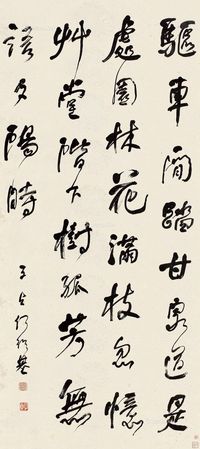 驅車閒踏甘泉道是
處園林花滿枝忽憶
艸堂階下樹孤芳無
語夕陽時
子貞何紹基